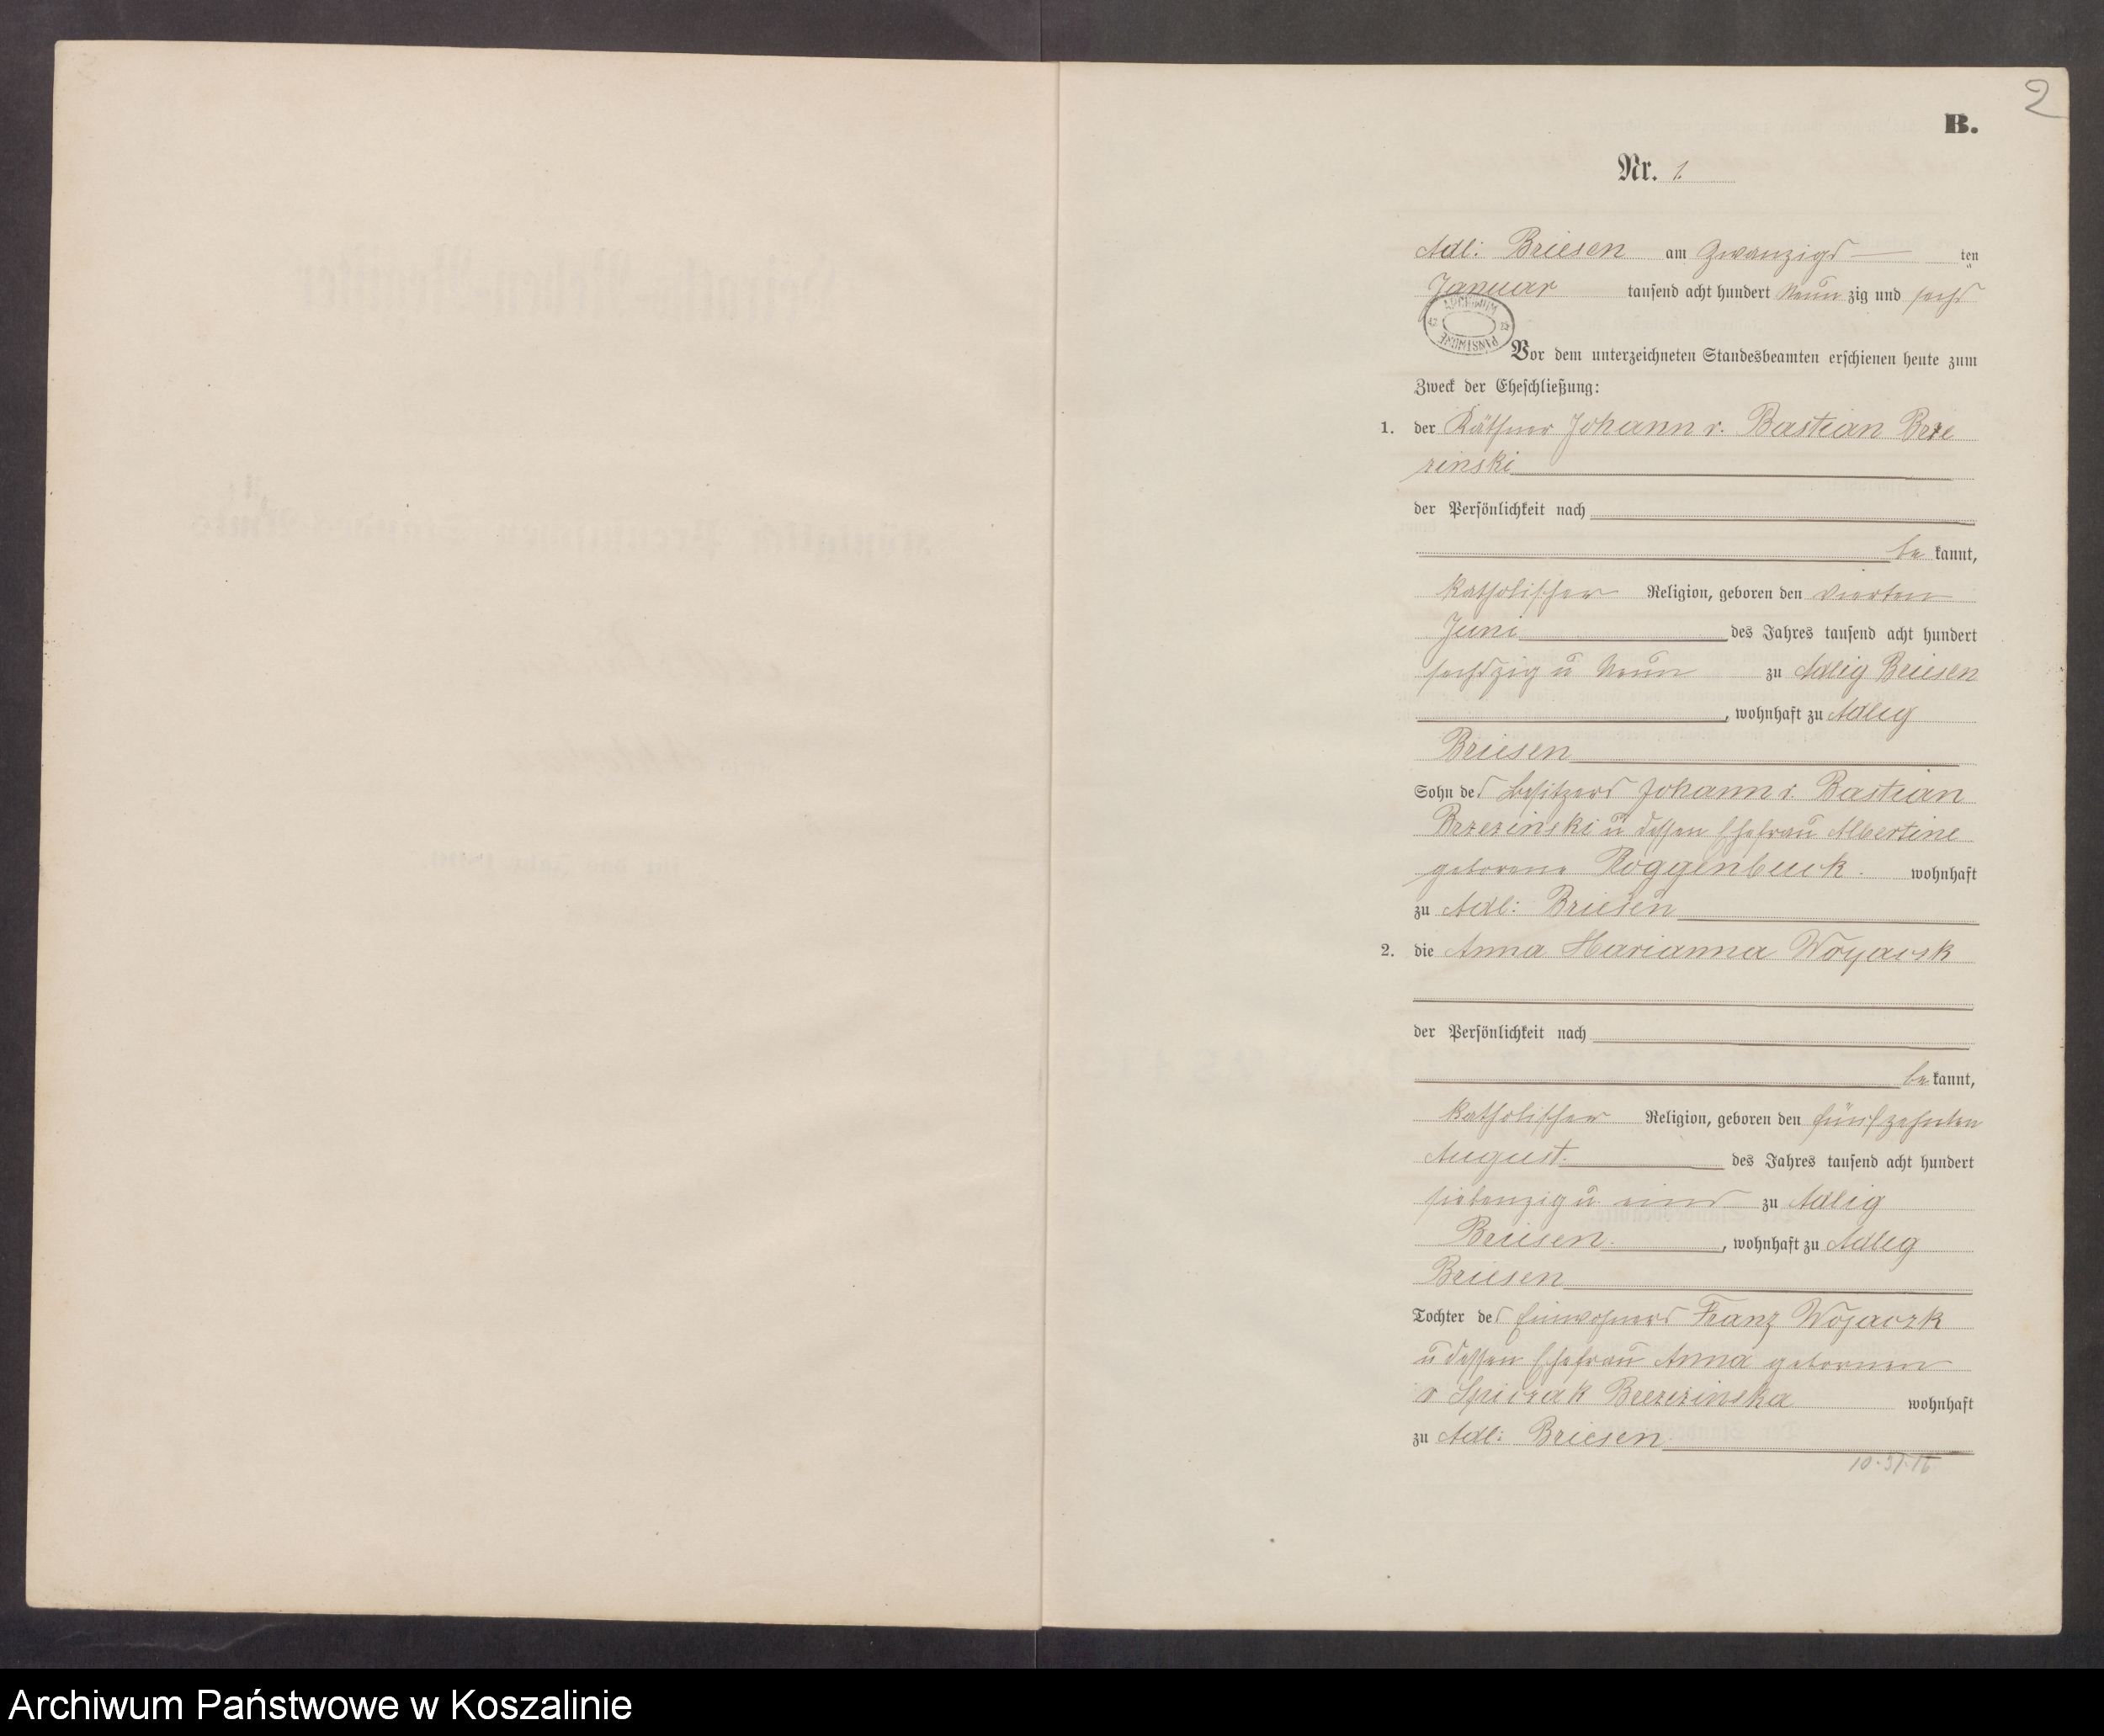 2
B.
Nr. 1.
Adl: Briesen am Zwanzigs ten
Januar tausend acht hundert Neun zig und sechs
ARCHIWUM PAŃSTWOWE
Vor dem unterzeichneten Standesbeamten erschienen heute zum
Zweck der Eheschließung:
1. der Käthner Johann v. Bastian Brze
zinski
der Persönlichkeit nach
be kannt,
katholischer Religion, geboren den vierten
Juni des Jahres tausend acht hundert
sechszig u Neun zu Adlig Briesen
, wohnhaft zu Adlig
Briesen
Sohn des Besitzers Johann v. Bastian
Brzezinski u dessen Ehefrau Albertine
geborene Roggenbuck. wohnhaft
zu Adl: Briesen
2. die Anna Marianna Woyaczk
der Persönlichkeit nach
be kannt,
katholischer Religion, geboren den fünfzehnten
August. des Jahres tausend acht hundert
siebenzig u. eins zu Adlig
Briesen. , wohnhaft zu Adlig
Briesen
Tochter des Einwohners Franz Wojaczk
u dessen Ehefrau Anna geborenen
v Spiczak Brzezinska wohnhaft
zu Adl: Briesen
Archiwum Państwowe w Koszalinie